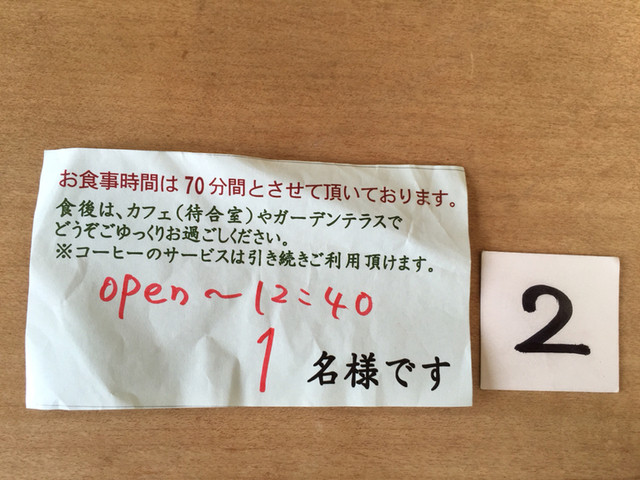 お食事時間は70分間とさせて頂いております。
食後は、カフェ(待合室)やガーデンテラスで
どうぞごゆっくりお過ごしください。
※コーヒーのサービスは引き続きご利用頂けます。
open～12:40
1名様です
2